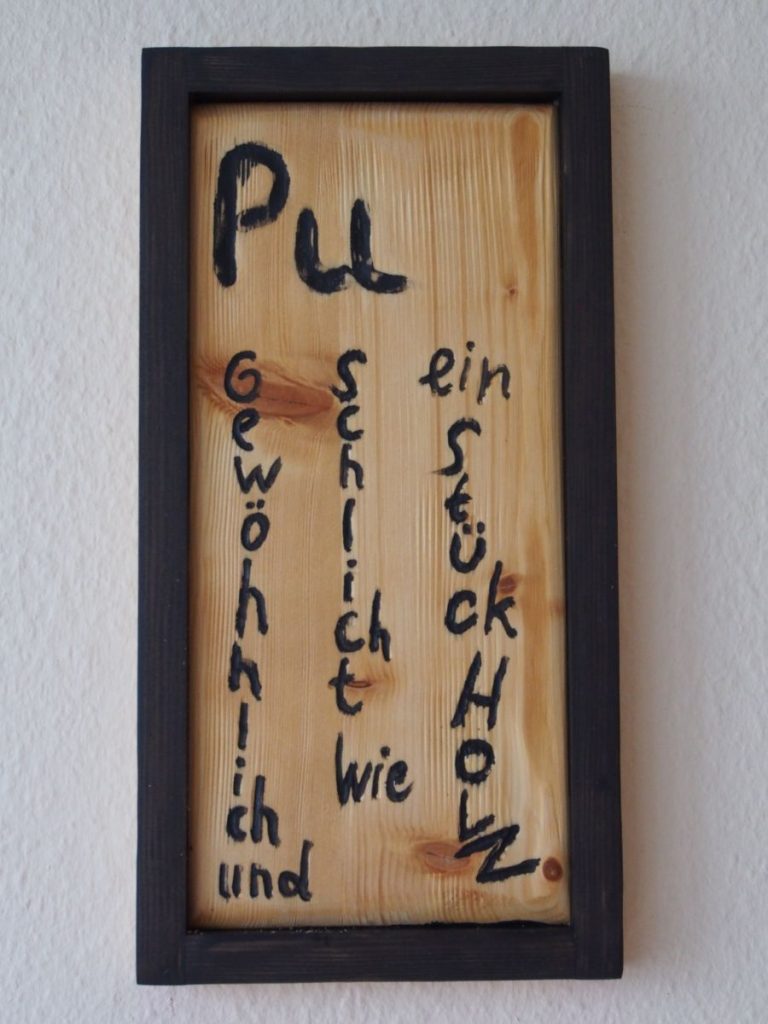 Pu
Gewöhnlich
und
schlicht
wie
ein
Stück
Holz